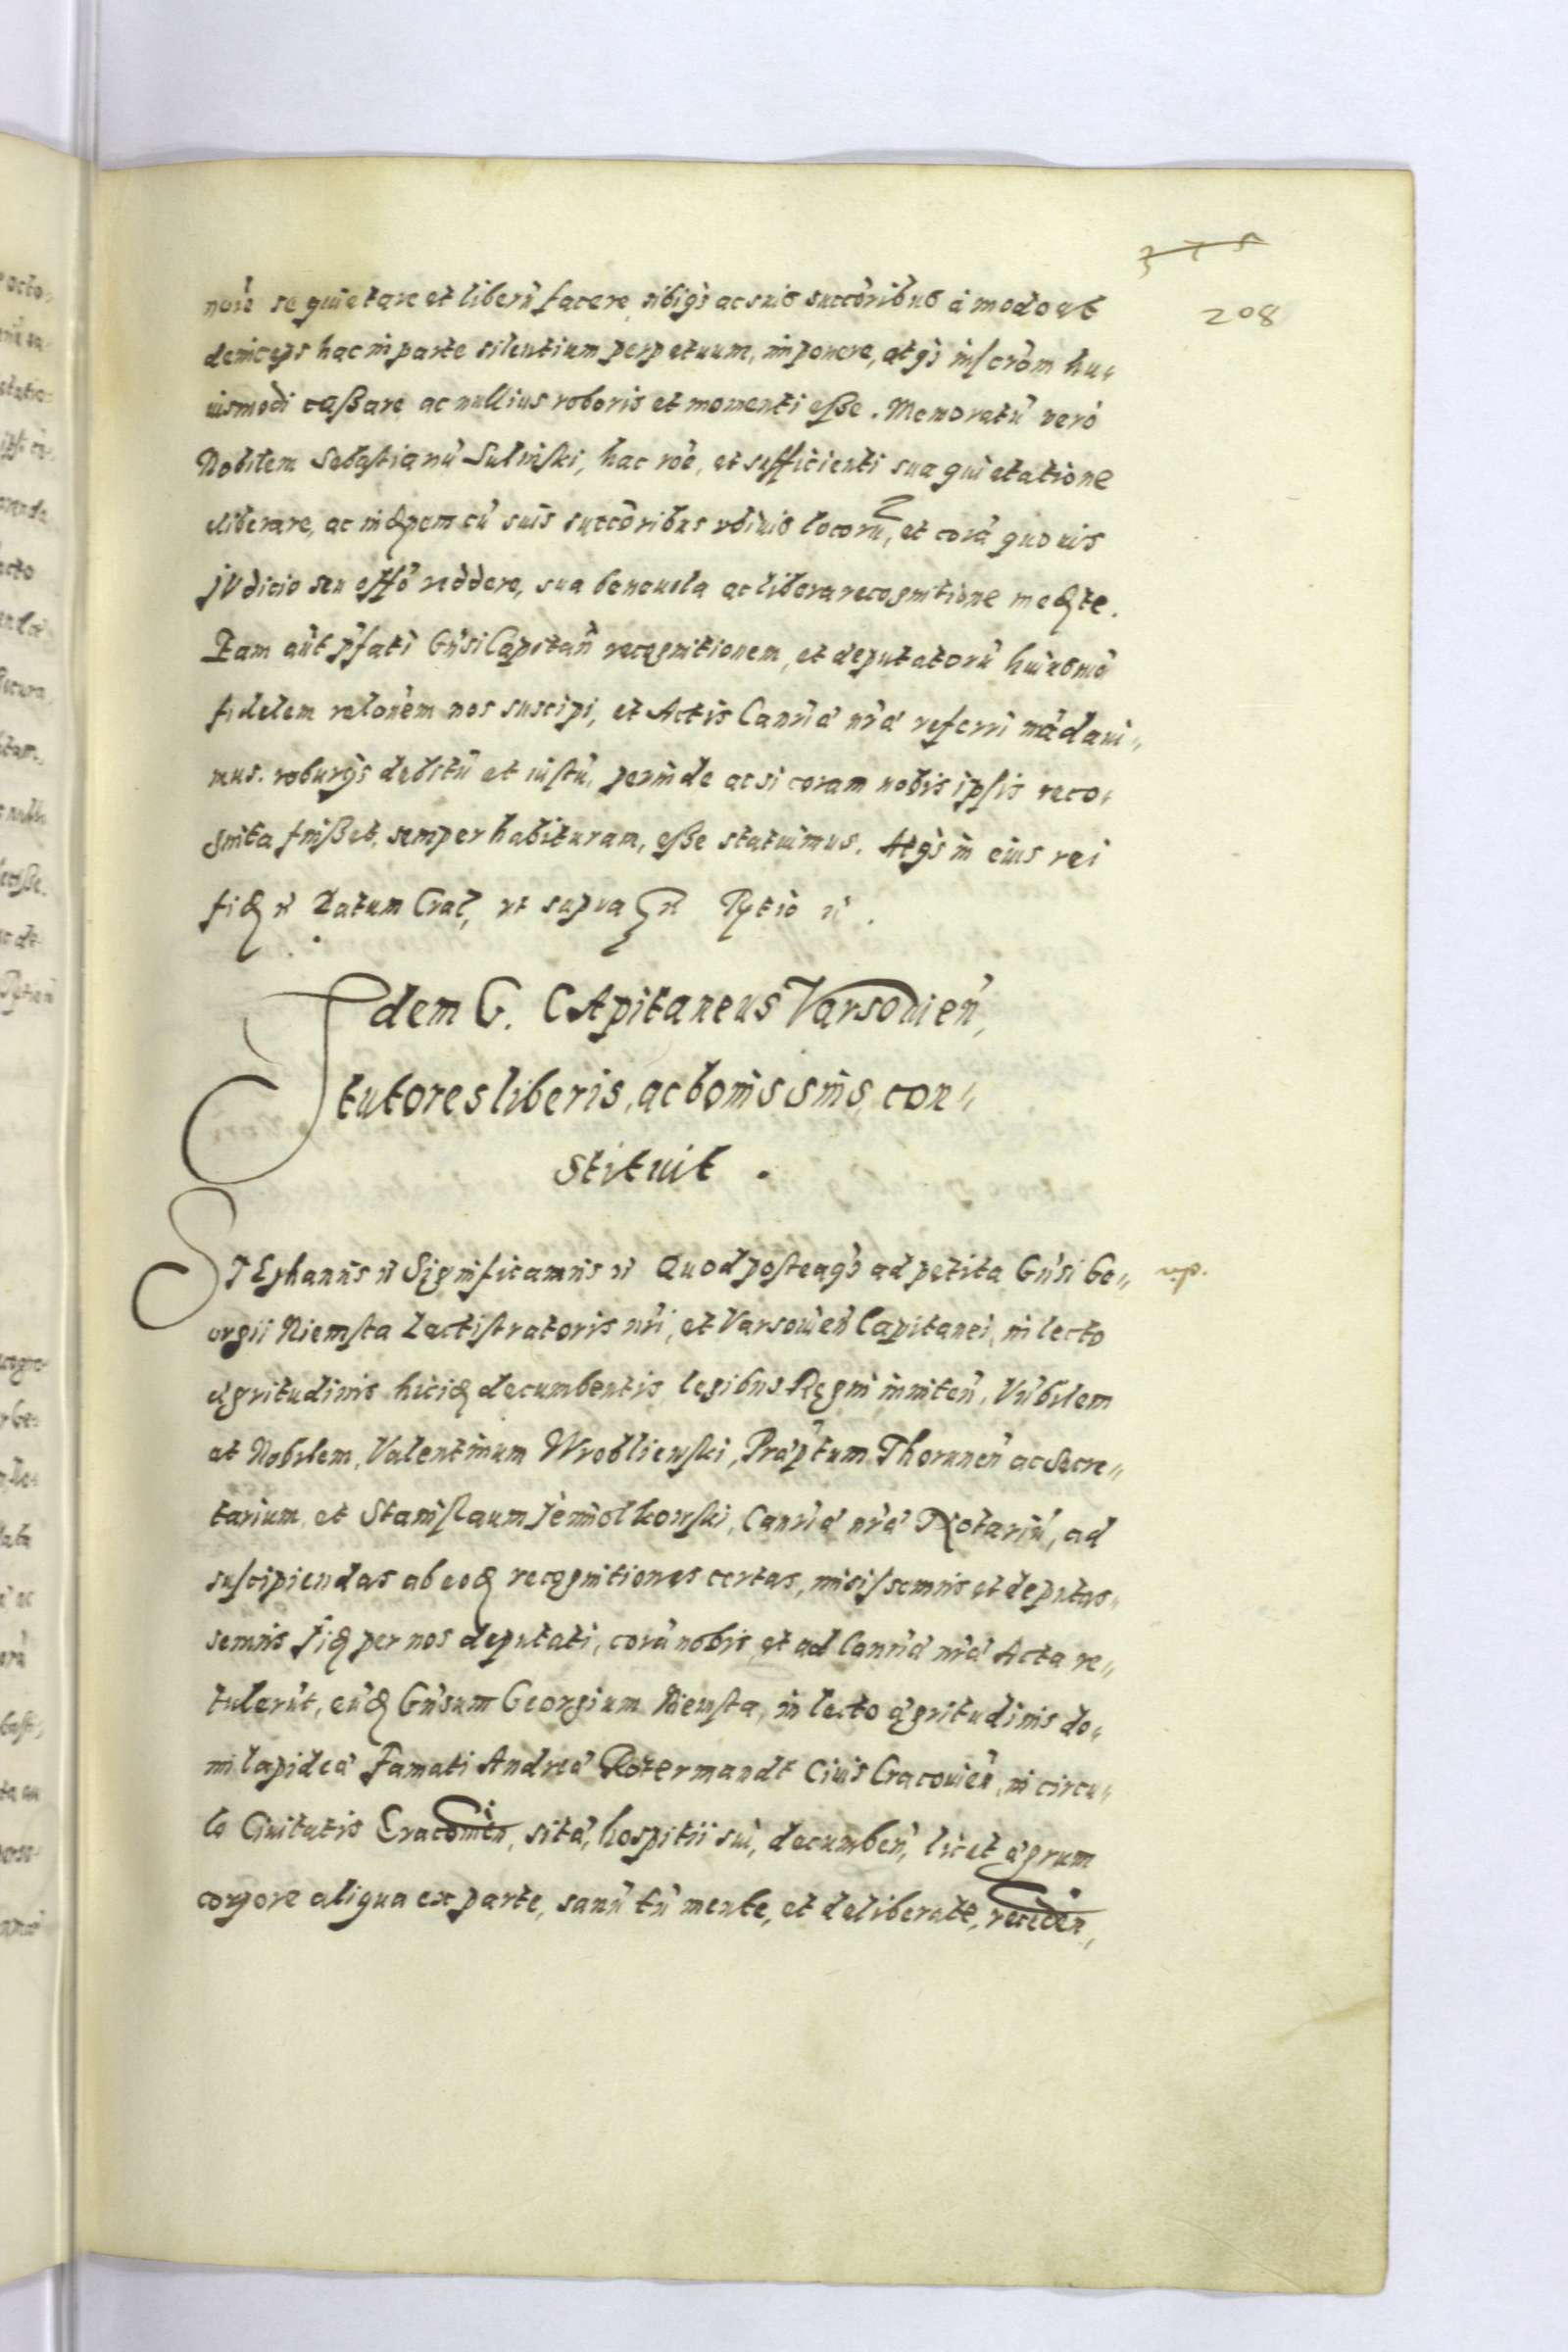 375
208
noīe se quietare et liberū facere, sibiq́ȝ ac suis succōribus à modo et
deinceps hac in parte silentium perpetuum, imponere, atq́ȝ inscrōm hu„
iusmodi caßare ac nullius roboris et momenti eße. Memoratū verò
Nobilem Sebastianū Sulinski, hac rōe, et sufficienti sua quietatione
eliberare, ac indȩpnem cū suis succōribus vbiuis locorū, et corā quouis
jVdicio seu offō reddere, sua beneuola ac libera recognitione medȩte.
Eam aūt p̄fati Gn̄si Capitan̄ recognitionem, et deputatorū huiusmōi
fidelem relōnem nos suscipi, et Actis Canr̄iæ nr̄æ referri mādaui„
mus. roburq́ȝ debitū et iustū, perinde ac si coram nobis ipsis reco„
gnita fuißet, semper habituram, eße statuimus. Atq́ȝ in eius rei
fidȩ rc̄ Datum Crac̄, vt supra rc̄ Rȩtio rc̄.
Idem G. CApitaneus Varsouien̄,
tutores liberis, ac bonis suis, con„
stituit.
STEphanus rc̄ Significamus rc̄ Quod posteaq̄ȝ ad petita Gn̄si Ge„
np.
orgii Niemsta Lectistratoris nr̄i, et Varsouien̄ Capitanei, in lecto
ægritudinis hicidȩ decumbentis, legibus Regni inniten̄, Vn̄bilem
et Nobilem, Valentinum Wroblienski, Præp̄tum Thorunen̄ ac Secre„
tarium, et Stanislaum Jemiolkowski, Canr̄iæ nr̄æ Notariū, ad
suscipiendas ab eodȩ recognitiones certas, misissemus et deputas„
semus Iidȩ per nos deputati, corā nobis, et ad Canr̄iæ nr̄æ Acta re„
tulerūt, eūdȩ Gn̄sum Georgium Niemsta, in lecto ægritudinis do„
mi lapideæ Famati Andreæ Rotermandt Ciuis Cracouien̄, in circu„
lo Ciuitatis Cracouien̄, sitæ, hospitii sui, decumben̄, licet ægrum
corpore aliqua ex parte, sanū tn̄ mente, et deliberate, receden̄,